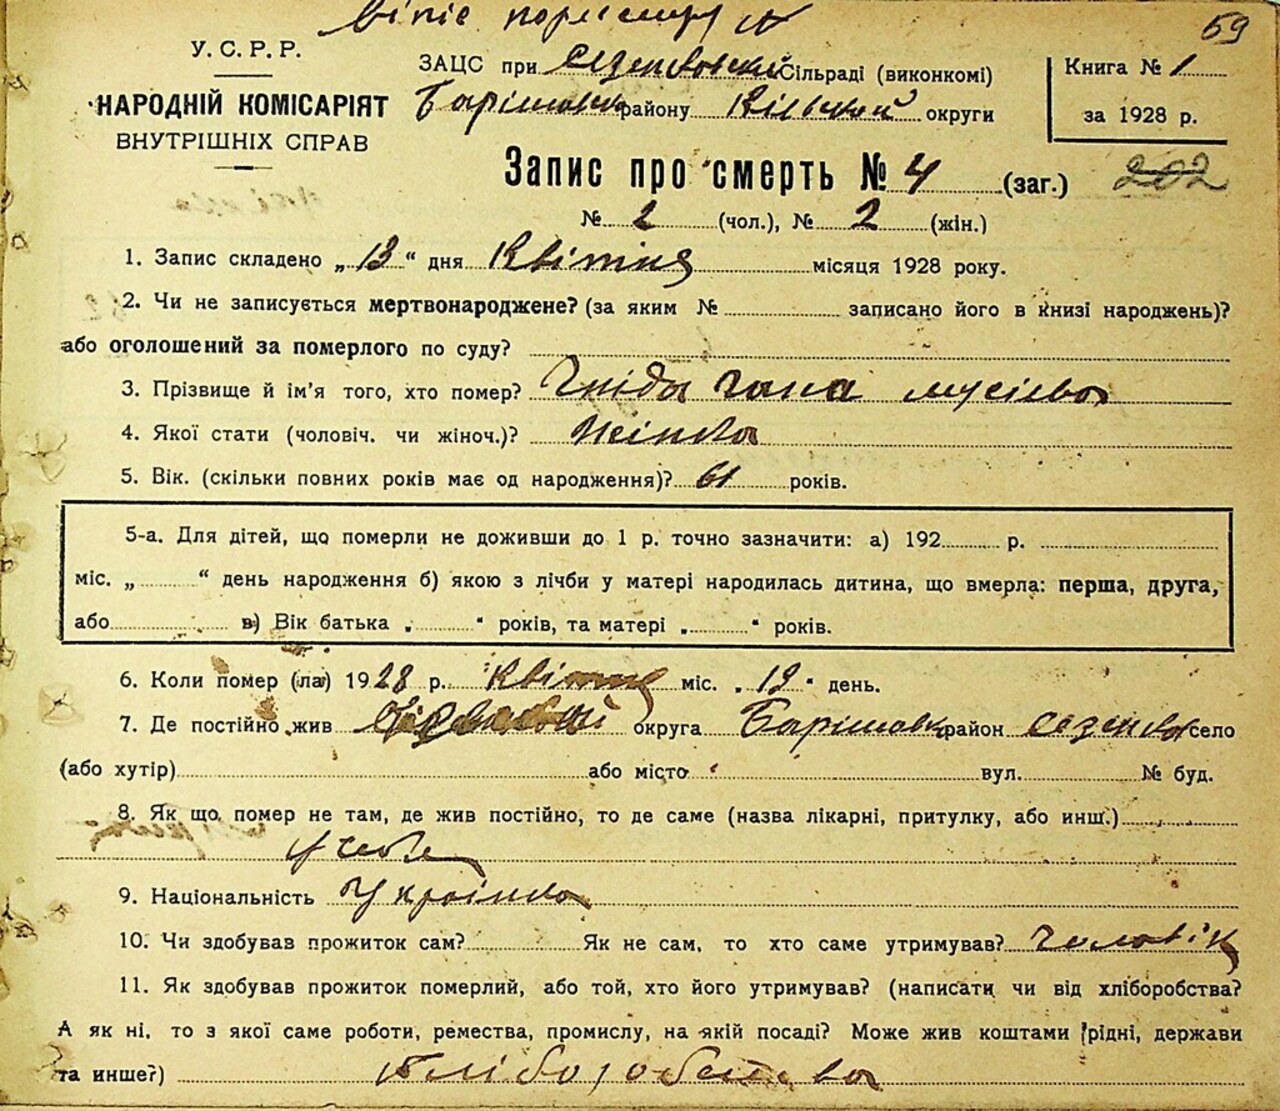 59
У. С. Р. Р.
НАРОДНІЙ КОМІСАРІЯТ
ВНУТРІШНІХ СПРАВ
ЗАЦС при Сезенковский Сільраді (виконкомі)
Барішовск району округи
Книга № 1
за 1928 р.
Запис про смерть № 4 (заг.) 202
№ 2 (чол.), № 2 (жін.)
1. Запис складено „13“ дня Квітня місяця 1928 року.
2. Чи не записується мертвонароджене? (за яким № записано його в книзі народжень)?
або оголошений за померлого по суду?
3. Прізвище й ім’я того, хто помер? Гніда Гана мусіева
4. Якої стати (чоловіч. чи жіноч.)? Жінка
5. Вік. (скільки повних років має од народження)? 61 років.
5-а. Для дітей, що померли не доживши до 1 р. точно зазначити: а) 192 р.
міс. „ “ день народження б) якою з лічби у матері народилась дитина, що вмерла: перша, друга,
або в) Вік батька „ “ років, та матері „ “ років.
6. Коли помер (ла) 1928 р. Квітня міс. „ “ день.
7. Де постійно жив округа Барішовк район Сезенков село
(або хутір) або місто вул. № буд.
8. Як що помер не там, де жив постійно, то де саме (назва лікарні, притулку, або инш.)
9. Національність Українка
10. Чи здобував прожиток сам? Як не сам, то хто саме утримував? Чоловік
11. Як здобував прожиток померлий, або той, хто його утримував? (написати чи від хліборобства?
А як ні, то з якої саме роботи, ремества, промислу, на якій посаді? Може жив коштами рідні, держави
та инше?)